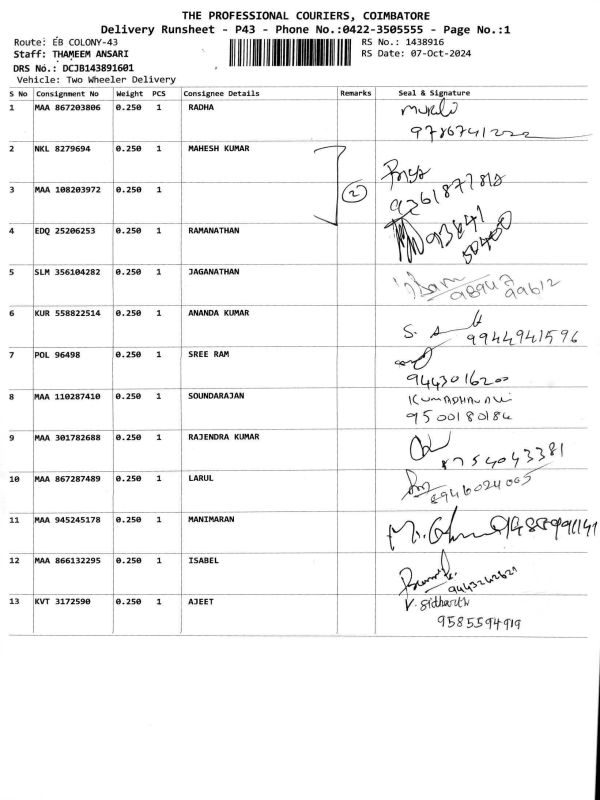 THE PROFESSIONAL COURIERS, COIMBATORE
Delivery Runsheet - P43 - Phone No.:0422-3505555 - Page No.:1
Route: EB COLONY-43 RS No.: 1438916
Staff: THAMEEM ANSARI RS Date: 07-Oct-2024
DRS No.: DCJB143891601
Vehicle: Two Wheeler Delivery
S No Consignment No Weight PCS Consignee Details Remarks Seal & Signature
1 MAA 867203806 0.250 1 RADHA
9786741222
2 NKL 8279694 0.250 1 MAHESH KUMAR
3 MAA 108203972 0.250 1 2 9361877818
4 EDQ 25206253 0.250 1 RAMANATHAN 93641
50400
5 SLM 356104282 0.250 1 JAGANATHAN
98947 99612
6 KUR 558822514 0.250 1 ANANDA KUMAR
9944941596
7 POL 96498 0.250 1 SREE RAM
9443016200
8 MAA 110287410 0.250 1 SOUNDARAJAN
9500180184
9 MAA 301782688 0.250 1 RAJENDRA KUMAR
8754043381
10 MAA 867287489 0.250 1 LARUL
8946024005
11 MAA 945245178 0.250 1 MANIMARAN
12 MAA 866132295 0.250 1 ISABEL
9443242621
13 KVT 3172590 0.250 1 AJEET V. Sidharth
9585594919